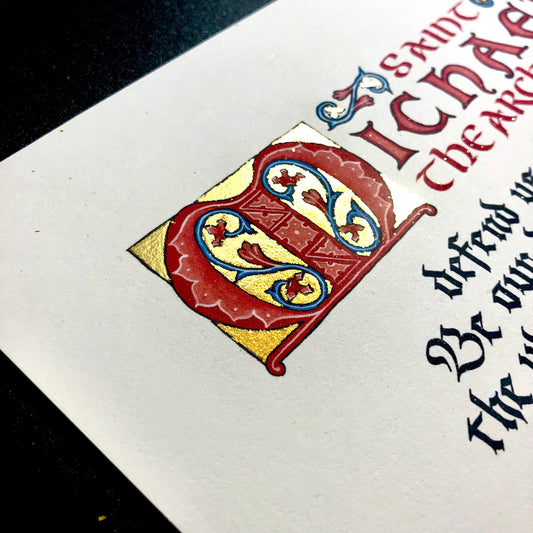 SAINT
MICHAE
THE ARCH
defend us
Be our
the w